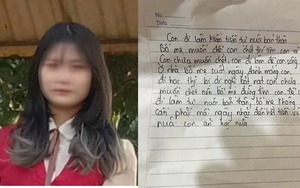 No.
Date
Con đi làm kiếm tiền tự nuôi bản thân
Bố mẹ muốn để con chết thì tìm con về
Con chưa muốn chết, con đi làm để con sống
Ở nhà bố mẹ suốt ngày đánh mắng con,
đi học thì bị dị nghị
muốn chết nên bố mẹ đừng tìm con về
đi làm tự nuôi bản thân, bố mẹ không
cần phải mỗi ngày nhắc đến hết tiền vì
nuôi con ăn học nữa